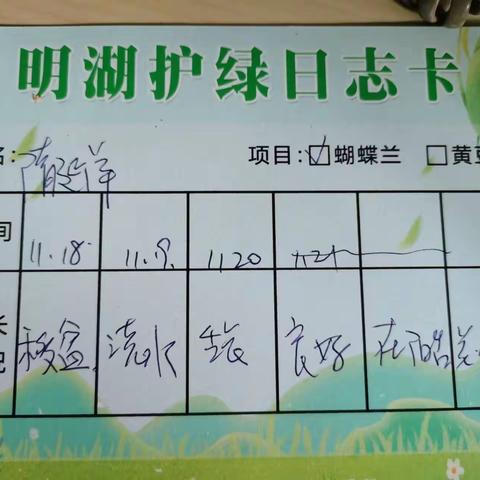 明湖护绿日志卡
名: 隋 洋 项目: ☑蝴蝶兰 □黄豆
间 11.18 11.9. 11.20 11.21
长 移盆 浇水 生长 良好 在